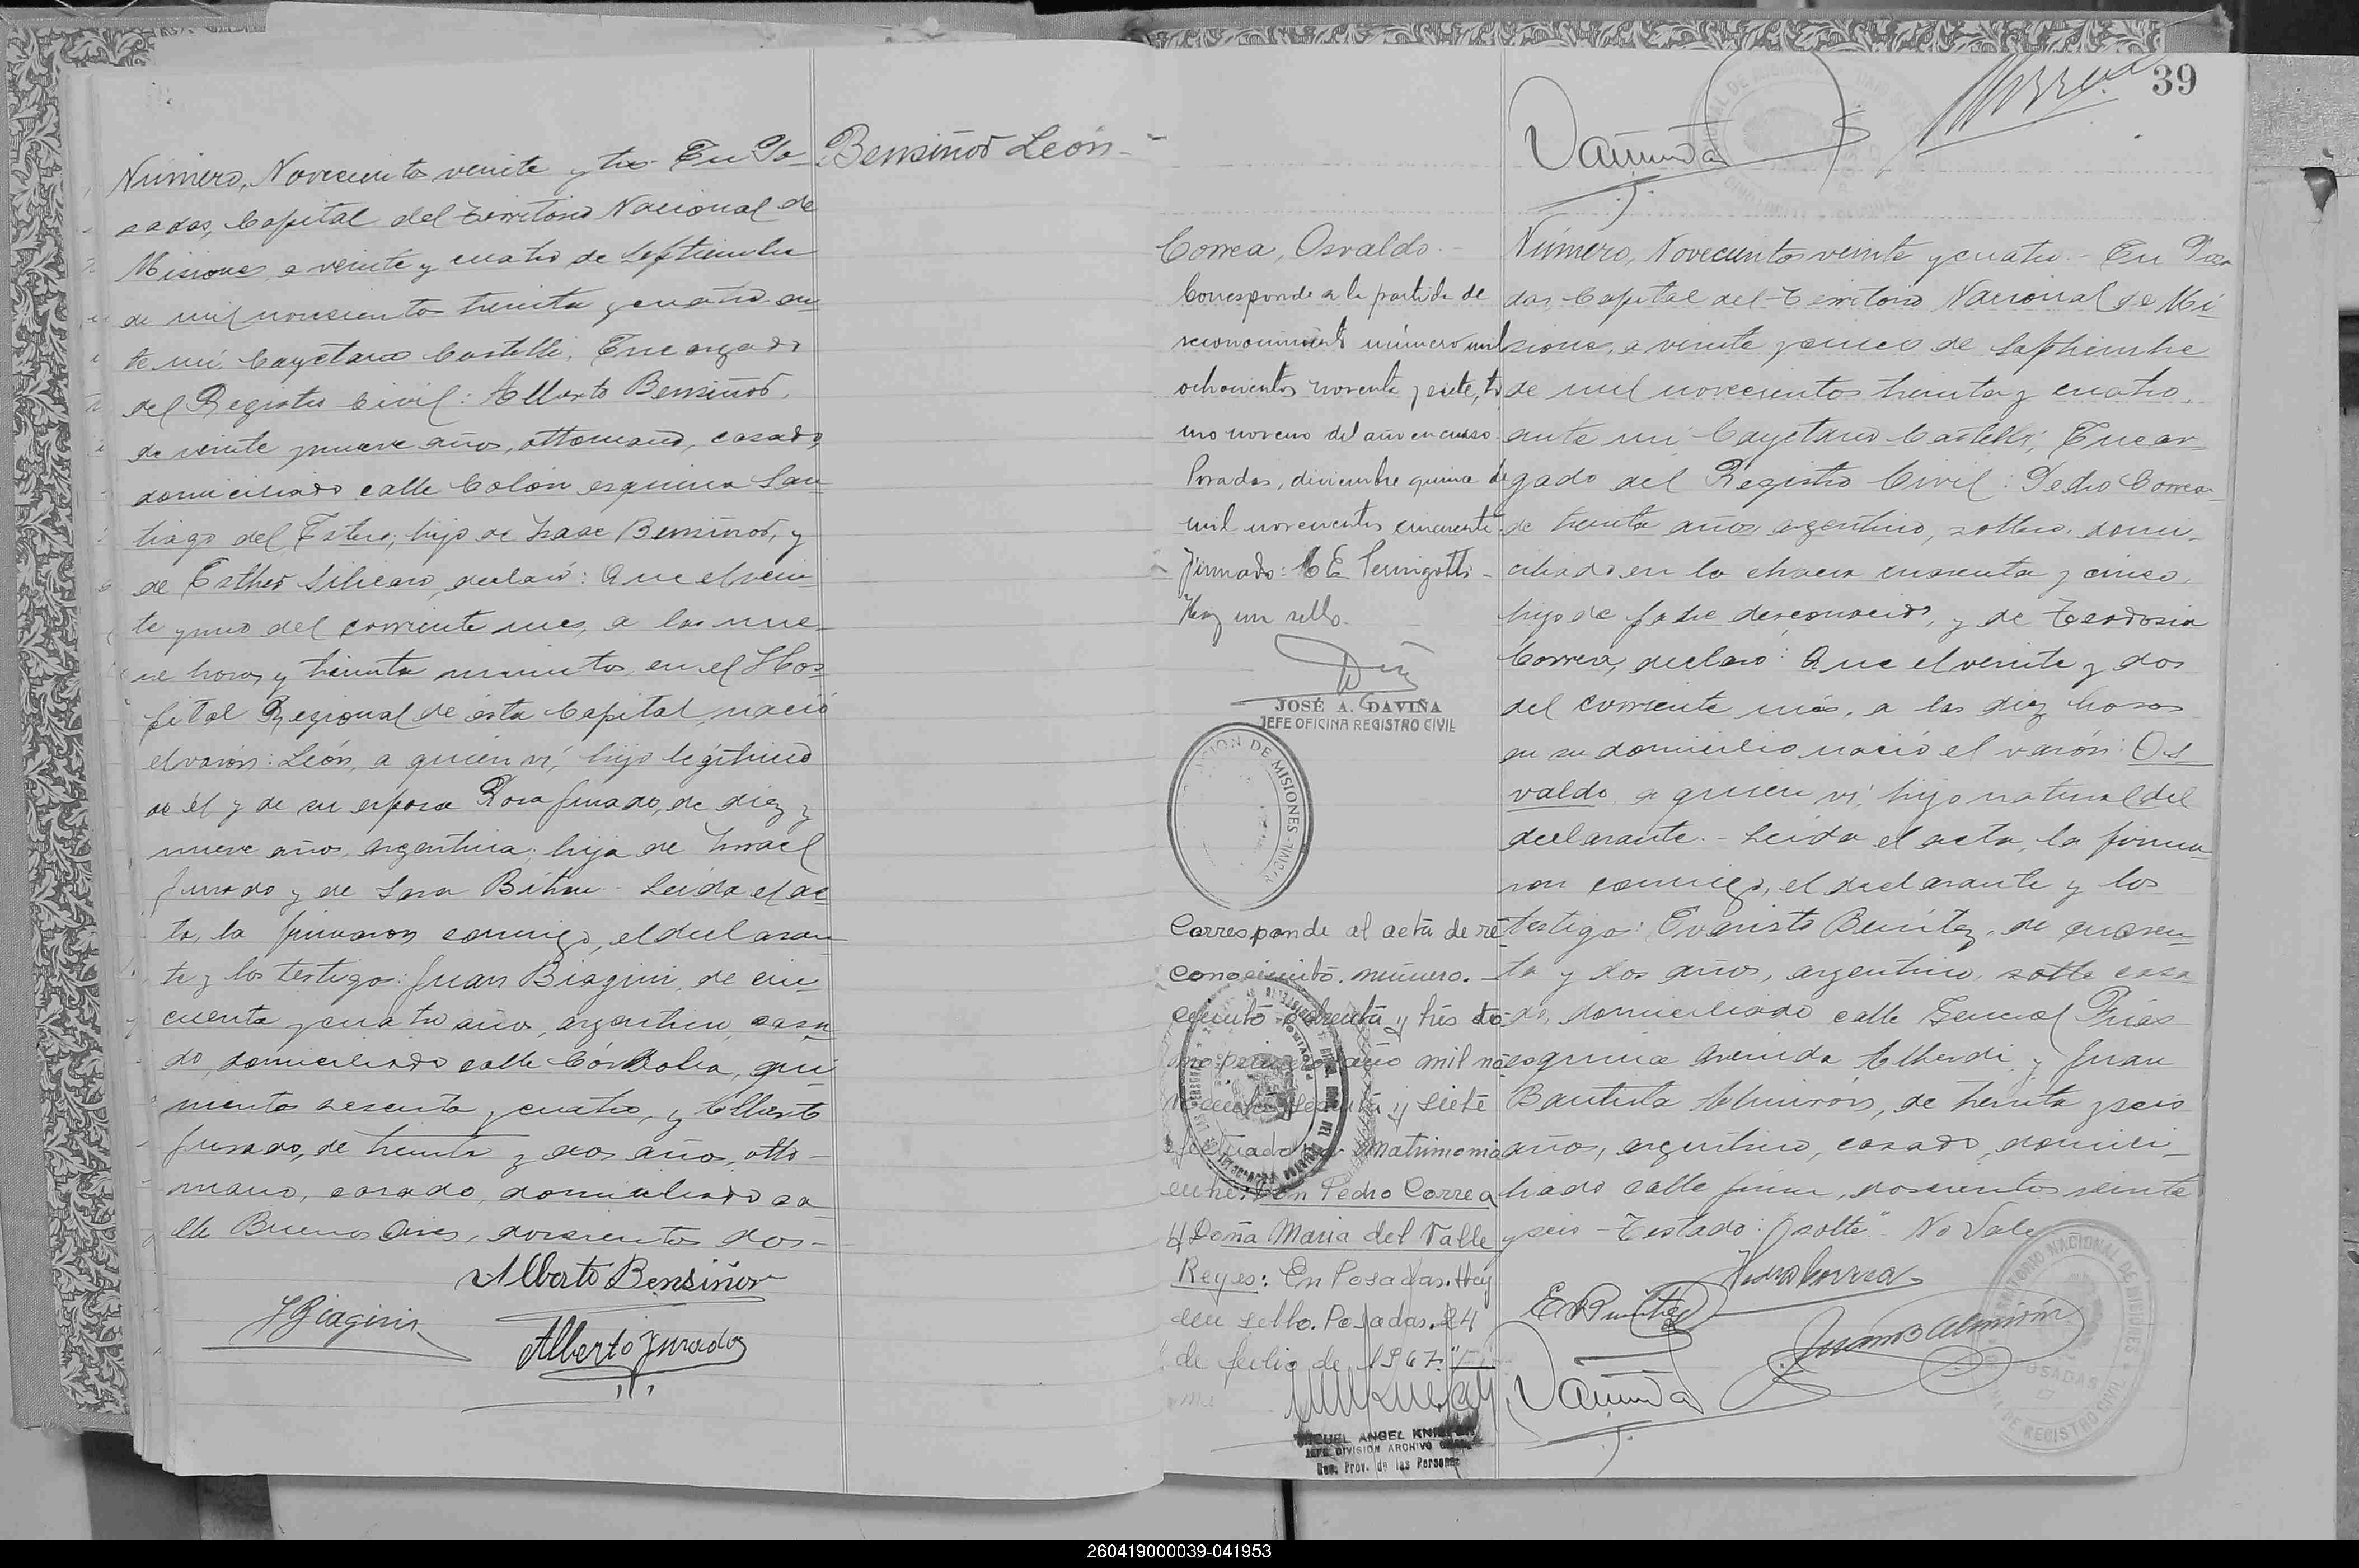 Bensiñor León
Número, Novecientos veinte y tres. En Po
sadas, Capital del Territorio Nacional de
Misiones, a veinte y cuatro de Septiembre
de mil novecientos treinta y cuatro an
te mi Cayetano Castelli, Encargado
del Registro Civil: Alberto Bensiñor,
de veinte y nueve años, ottomano, casado,
domiciliado calle Colón esquina San
tiago del Estero, hijo de Isaac Bensiñor, y
de Esther declaró: Que el vein
te y uno del corriente mes, a las nue
ve horas y treinta minutos, en el Hos
pital Regional de ésta Capital, nació
el varón: León, a quien ví, hijo legítimo
de él y de su esposa Rosa Jurado, de diez y
nueve años, argentina, hija de Israel
Jurado y de Sara Leída el ac
ta, la firmaron conmigo, el declaran
te y los testigos: Juan Biagini, de cin
cuenta y cuatro años, argentino, casa
do, domiciliado calle Córdoba, qui
nientos sesenta y cuatro, y Alberto
Jurado, de treinta y dos años, otto
mano, casado, domiciliado ca
lle Buenos Aires, doscientos dos-
Alberto Bensiñor
JBiagini
Alberto Jurado
39
Correa, Osvaldo.-
Corresponde a la partida de
reconocimiento número mil
ochocientos noventa y siete, to
mo noveno del año en curso
Posadas, diciembre quince de
mil novecientos cincuenta
Firmado: M E Peningotti-
Hay un sello.
JOSÉ A. DAVIÑA
JEFE OFICINA REGISTRO CIVIL
DE MISIONES
Corresponde al acta de re
conocimiento. número.-
ciento y tres to-
mo primero año mil no
y siete
efectuado por matrimonio
entre: Don Pedro Correa
y Doña Maria del Valle
Reyes: En Posadas. Hay
un sello. Posadas. 24
de julio de 1967."
MIGUEL ANGEL
JEFE DIVISIÓN ARCHIVO GRAL.
Reg. Prov. de las Personas
Número, Novecientos veinte y cuatro.- En Posa
das, Capital del Territorio Nacional de Mi
siones, a veinte y cinco de Septiembre
de mil novecientos treinta y cuatro,
ante mi Cayetano Castelli, Encar
gado del Registro Civil: Pedro Correa
de treinta años, argentino, soltero, domi
ciliado en la chacra cuarenta y cinco,
hijo de padre desconocido, y de Teodosia
Correa, declaró: Que el veinte y dos
del corriente mes, a las diez horas
en su domicilio nació el varón: Os
valdo, a quien ví, hijo natural del
declarante.- Leída el acta, la firma
ron conmigo, el declarante y los
testigos: Evaristo Benítez, de cuaren
ta y dos años, argentino, solte casa
do, domiciliado calle General Frías
esquina Avenida Alberdi y Juan
Bautista Almirón, de treinta y seis
años, argentino, casado, domici
liado calle Junin, doscientos veinte
y seis - Testado: "solte" No Vale
Pedro Correa
E Benítez
Juan B Almirón
TERRITORIO NACIONAL DE MISIONES
POSADAS
REGISTRO CIVIL
260419000039-041953